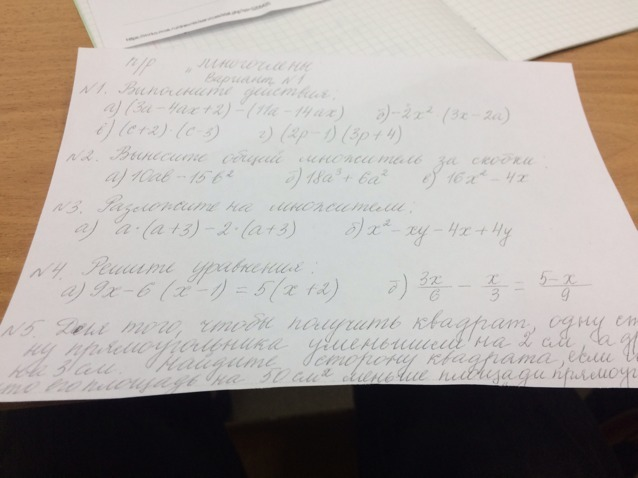 п/р „ многочлены
Вариант №1
№1. Выполните действия:
а) (3а - 4ах + 2) - (11а - 14ах) б) -2x² (3x - 2а)
в) (с+2)·(с-3) г) (2р-1)(3р+4)
№2. Вынесите общий множитель за скобки:
а) 10ab - 15b² б) 18а³ + 6а² в) 16х² - 4х
№3. Разложите на множители:
а) а·(а+3) - 2·(а+3) б) х² - ху - 4х + 4у
№4 Решите уравнения:
а) 9х - 6 (х - 1) = 5(х + 2) б) 3х/6 - х/3 = 5-х/9
№5. Для того, чтобы получить квадрат, одну ст
ну прямоугольника уменьшили на 2 см а др
на 3 см. Найдите сторону квадрата, если
что его площадь на 50 см² меньше площади прямоуг